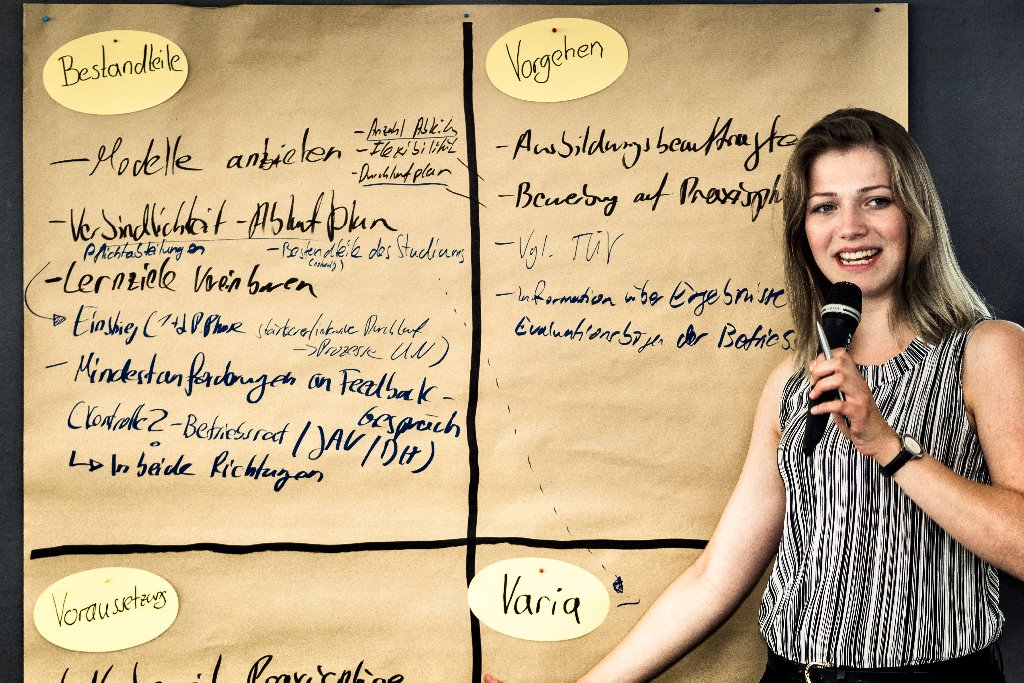 Bestandteile
– Modelle anbieten
– Anzahl Abteil.
– Flexibilität
– Durchlaufplan
– Verbindlichkeit – Ablaufplan
Pflichtabteilungen – Bestandteile des Studiums
– Lernziele vereinbaren
Einstieg (1+2 P Phase
→ Prozesse UN)
– Mindestanforderungen an Feedback-
gespräch
(Kontrolle? – Betriebsrat / JAV / DH)
↳ In beide Richtungen
Vorgehen
– Ausbildungsbeauftragte
– Bewerbung auf Praxisph
– Vgl. TÜV
– Information über Ergebnisse
Evaluationsbögen der Betriebs
Voraussetzung
Praxispläne
Varia